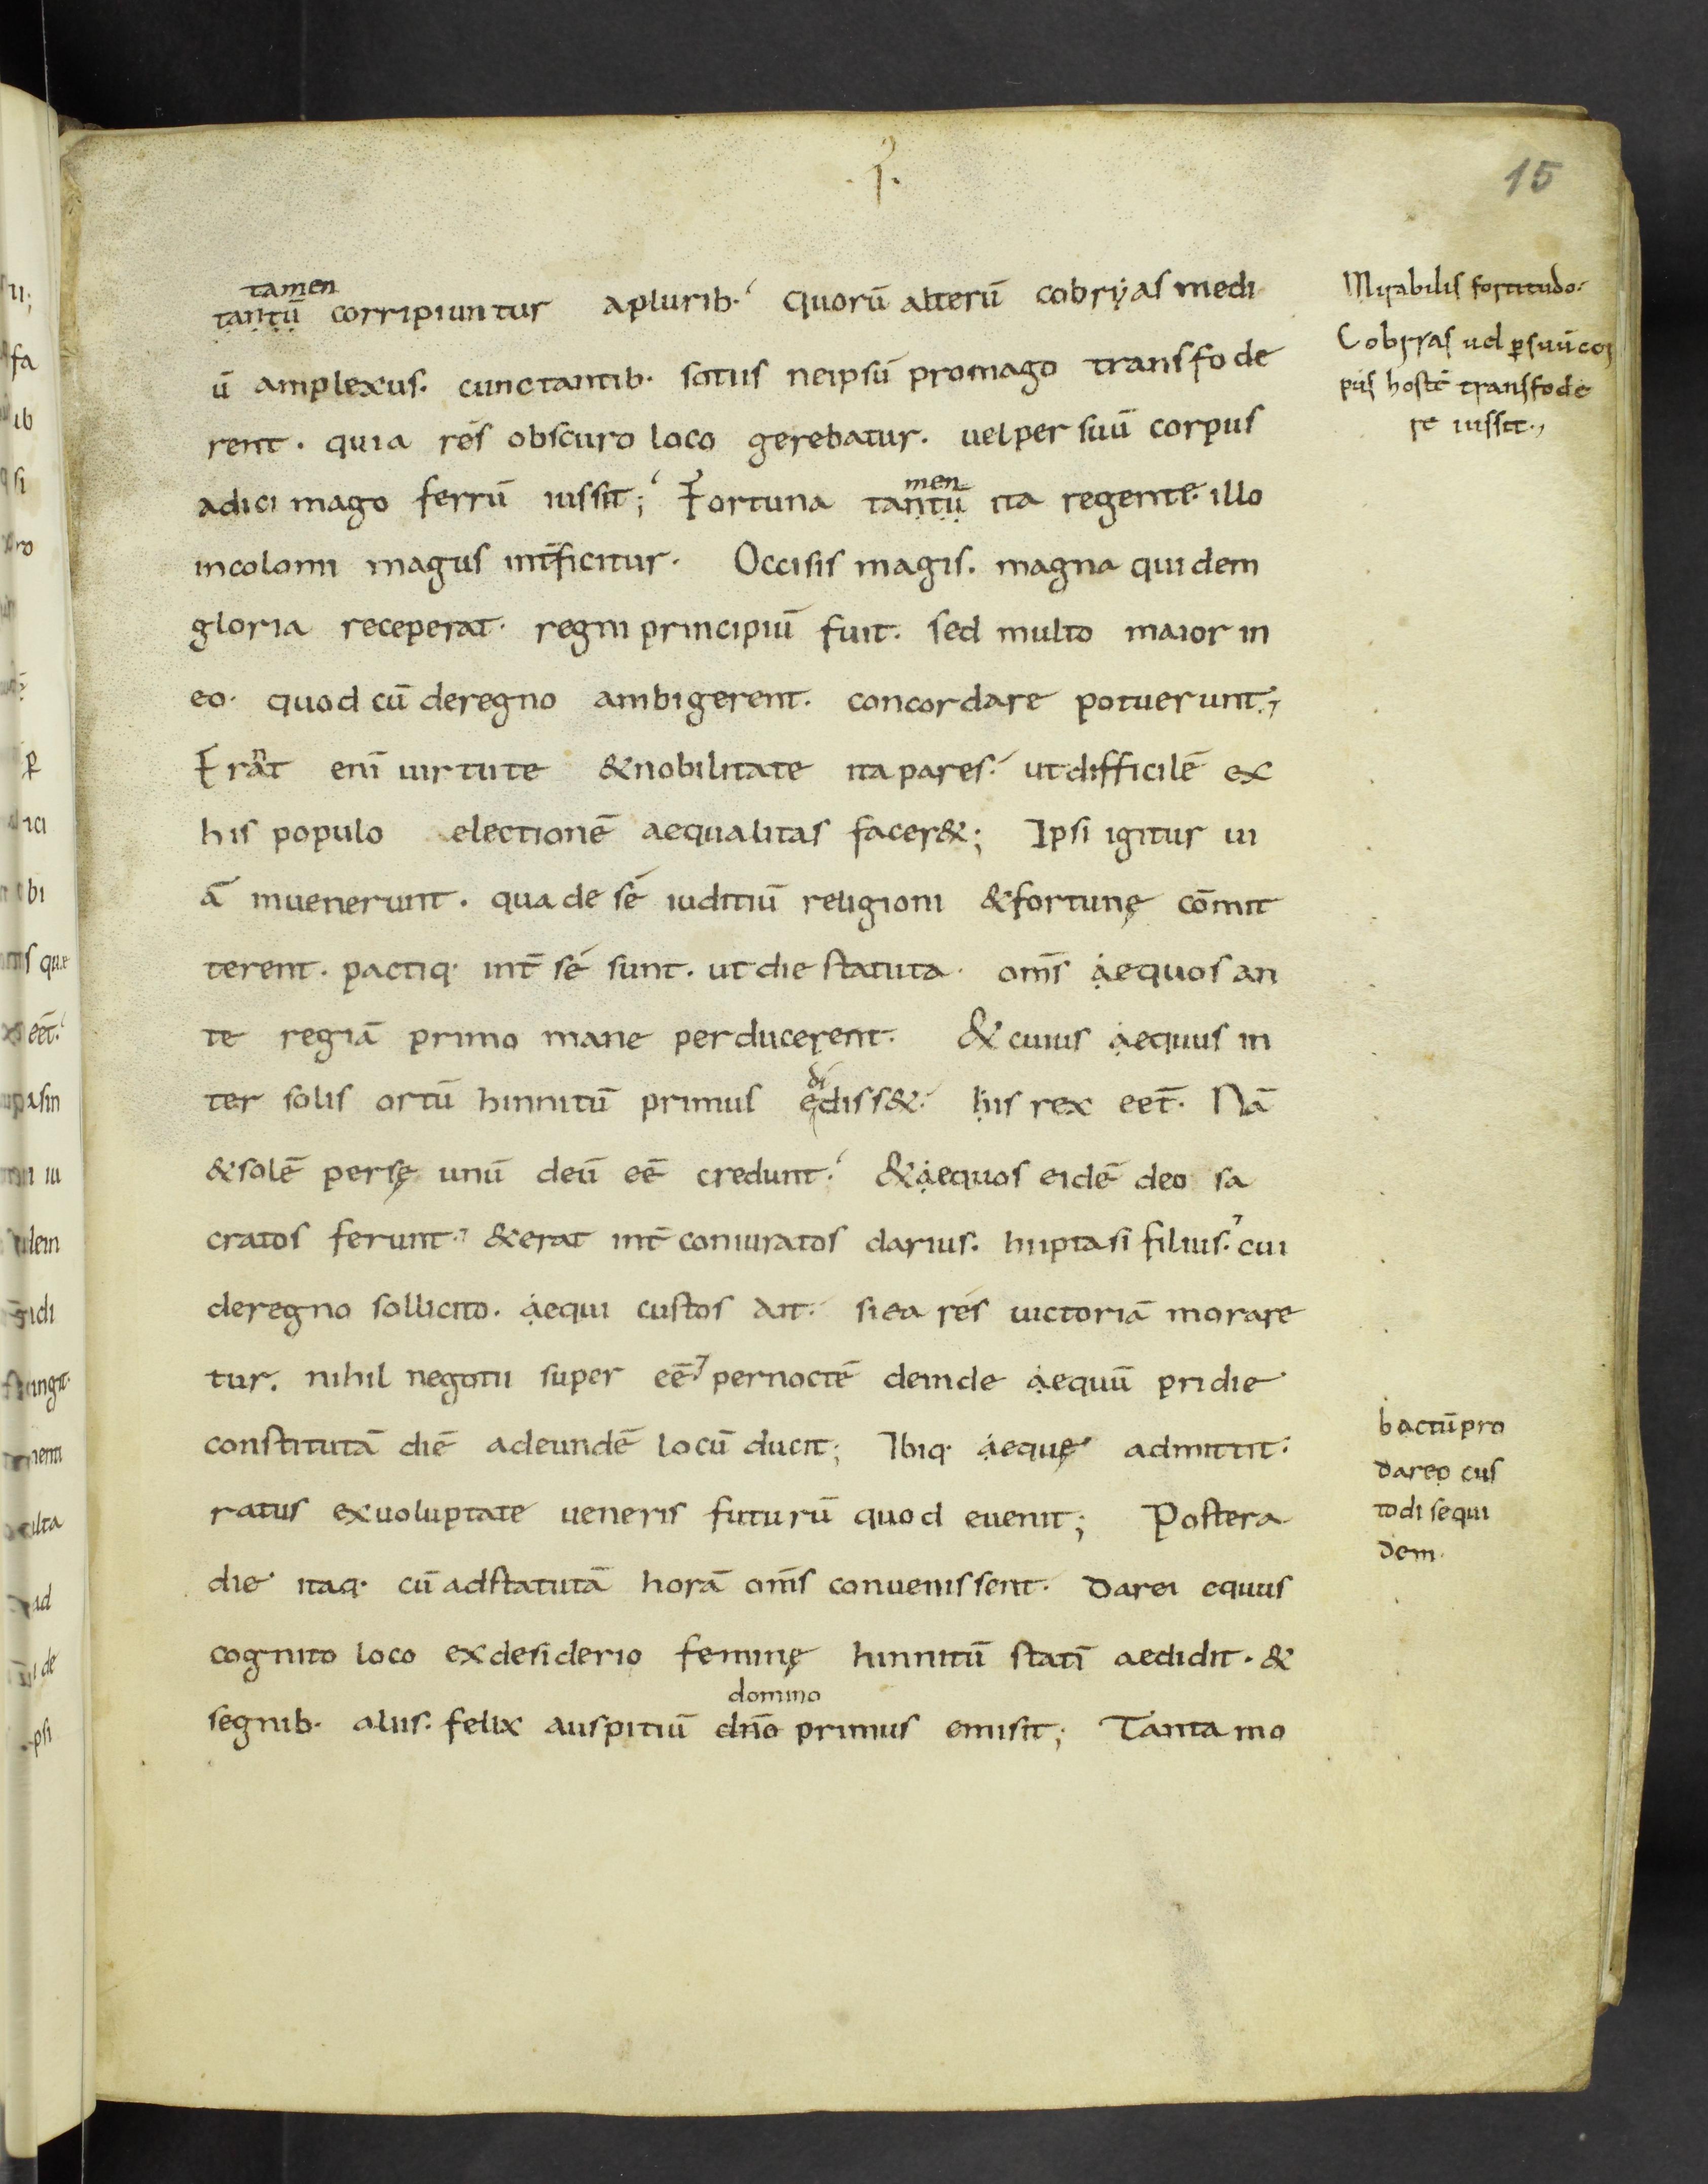 .I.
15
tamen
tantū corripiuntur a plurib· quorū alterū cobryas medi
ū amplexus. cunctantib· sotus ne ipsū pro mago transfode
rent. quia res obscuro loco gerebatur. uel per suū corpus
men
adici mago ferrū iussit; Fortuna tantū ita regente. illo
incolomi magus intficitur. Occisis magis. magna quidem
gloria receperat. regni principiū fuit. sed multo maior in
eo. quod cū de regno ambigerent. concordare potuerunt;
n
Erat eni uirtute & nobilitate ita pares. ut difficilē ex
his populo electionē aequalitas facer&; Ipsi igitur ui
ā inuenerunt. qua de se iuditiū religioni & fortunę cōmit
terent. pactiq· int̄ se sunt. ut die statuta. om̄s aequos an
te regiā primo mane perducerent. & cuius aequus in
di
ter solis ortū hinnitū primus ediss&. his rex eēt. Nā
& solē persę unū deū eē credunt. & aequos eidē deo sa
cratos ferunt. & erat int̄ coniuratos darius. hiiptasi filius. cui
de regno sollicito. aequi custos ait. si ea res uictoriā morare
tur. nihil negotii super eē pernoctē deinde aequū pridie
constitutā diē ad eundē locū ducit; Ibiq· aequę admittit.
ratus ex uoluptate ueneris futurū quod euenit; Postera
die itaq· cū ad statutā horā om̄s conuenissent. Darei equus
cognito loco ex desiderio feminę hinnitū statī aedidit. &
domino
segnib· aliis. felix auspitiū dn̄o primus emisit; Tanta mo
Mirabilis fortitudo.
Cobrias uel p̱ suū cor
pus hostē transfode
re iussit.
bactū pro
dareo cus
todis equi
dem.